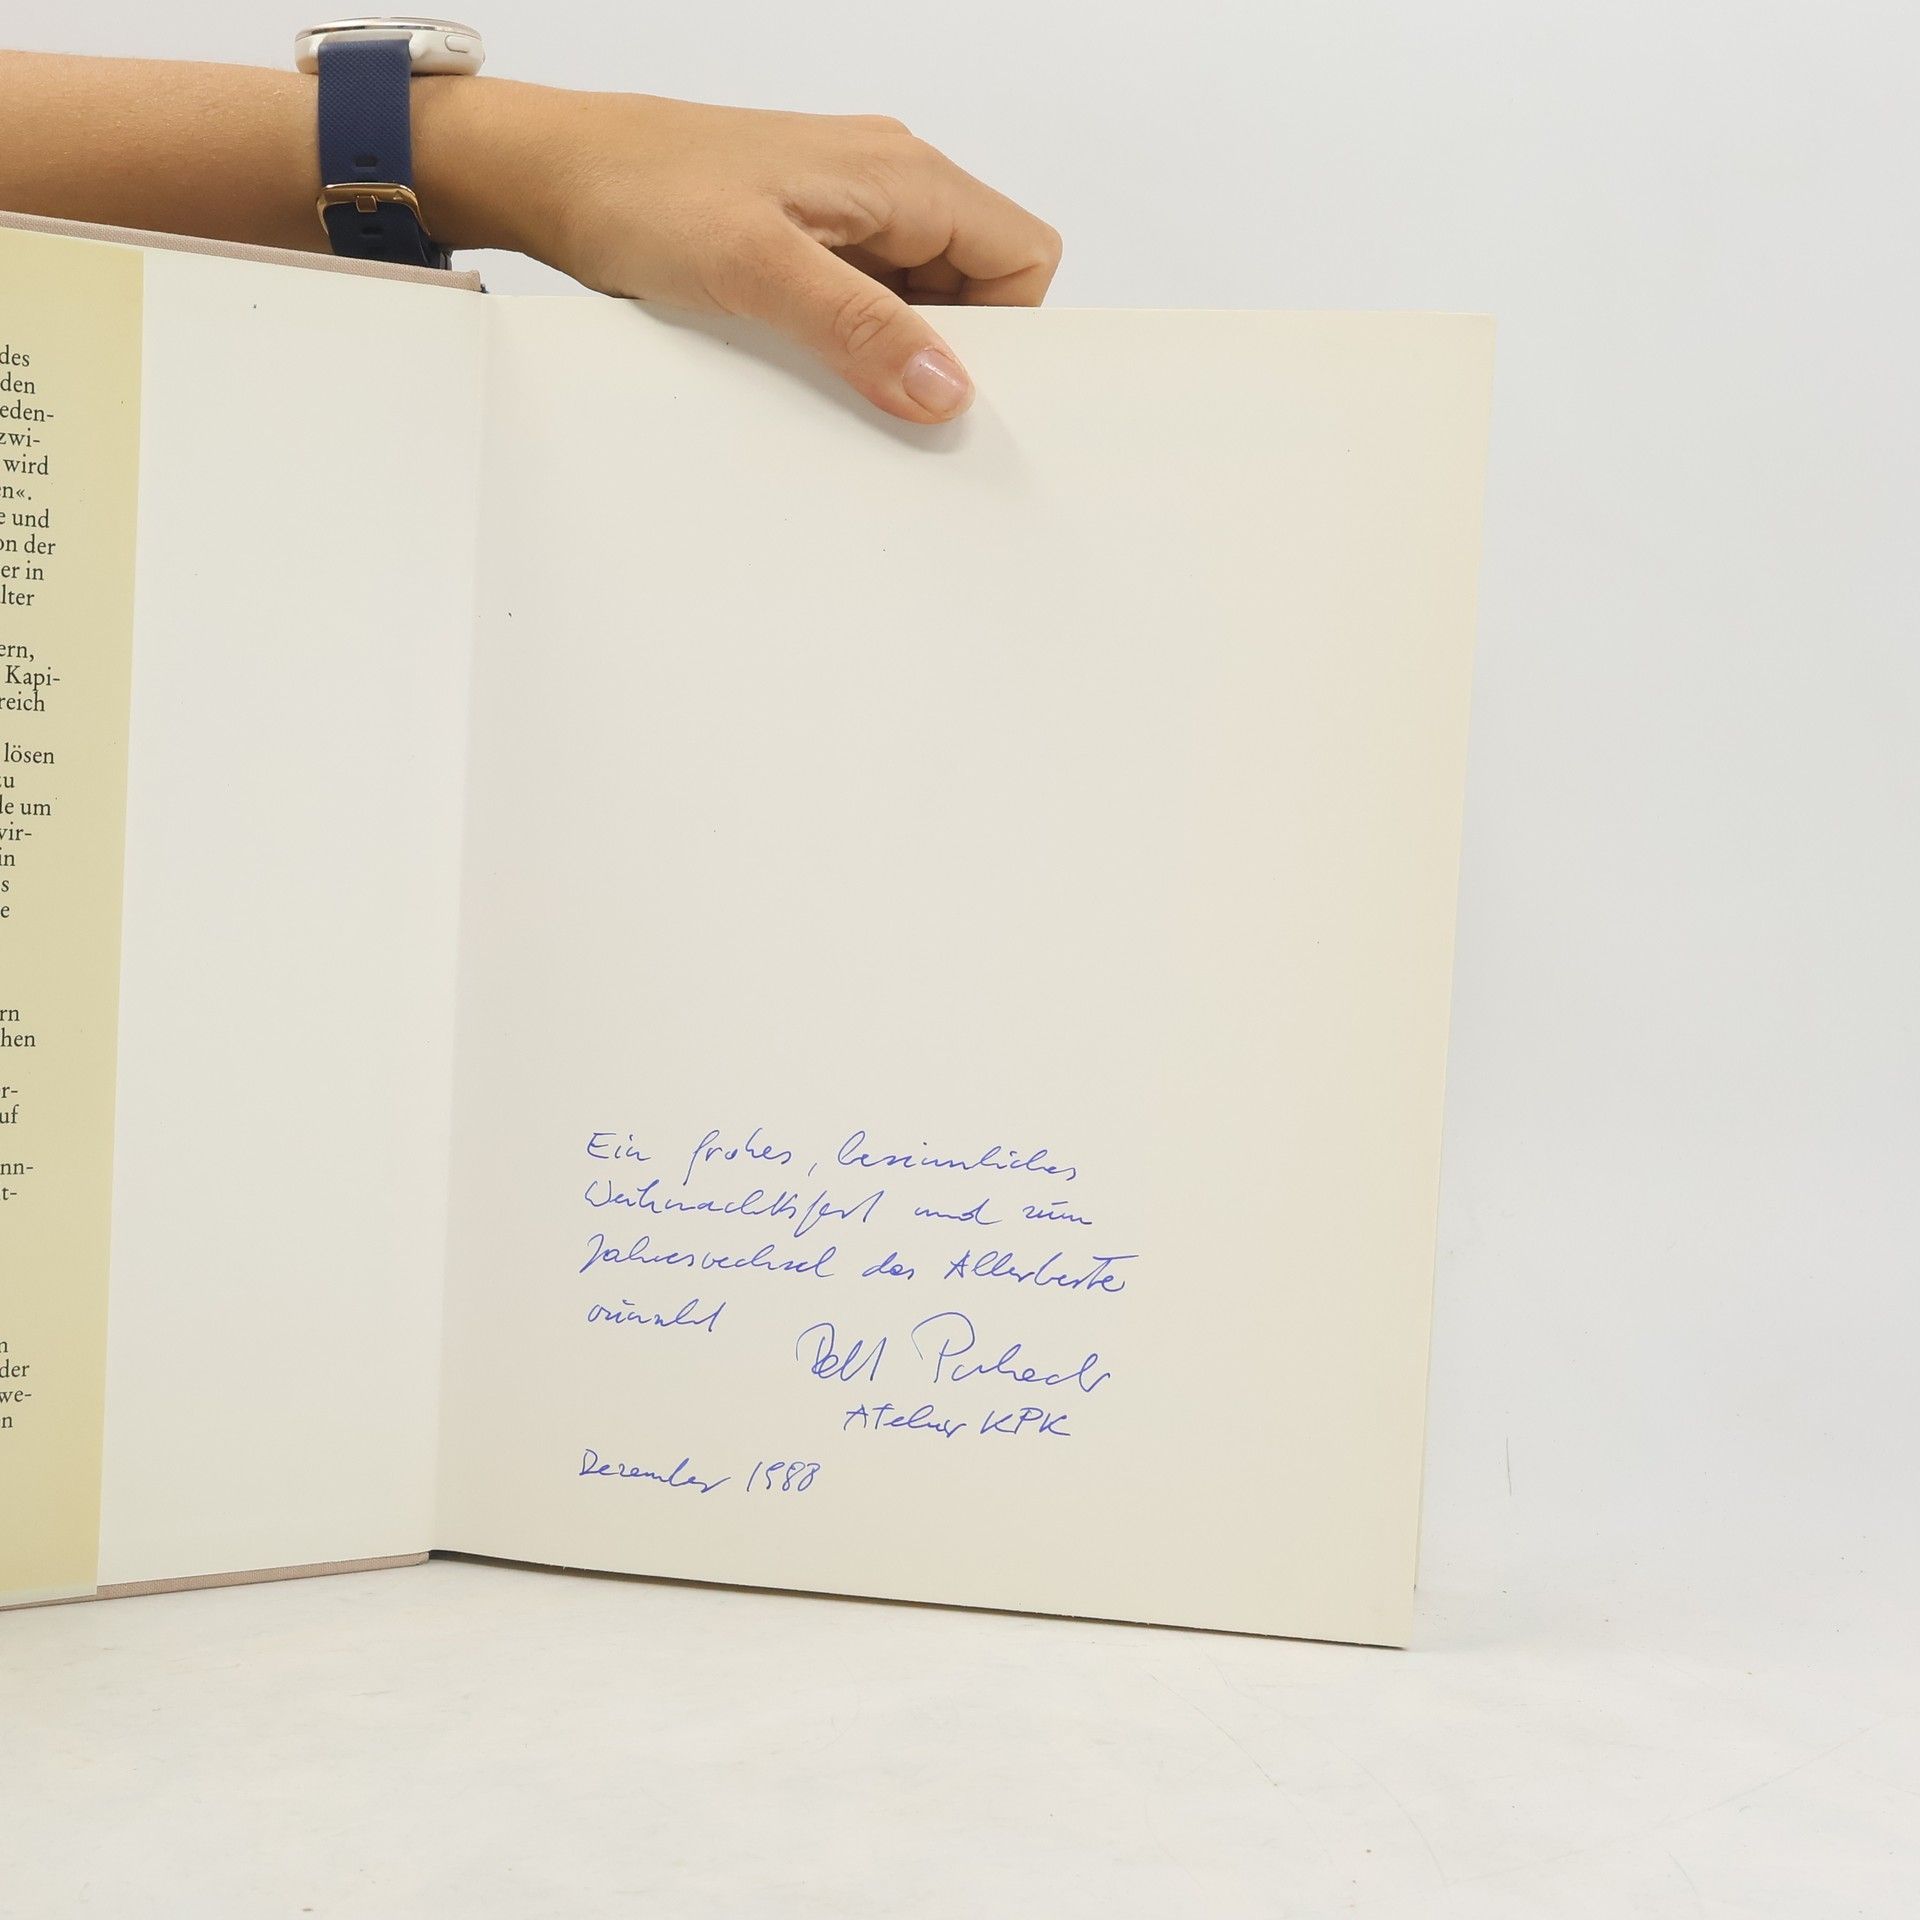 des
den
eden-
zwi-
wird
en«.
e und
on der
er in
lter
ern,
Kapi-
reich
lösen
zu
de um
wir-
in
s
e
rn
hen
r-
uf
nn-
t-
n
der
we-
n
Ein frohes, besinnliches
Weihnachtsfest und zum
Jahreswechsel das Allerbeste
wünscht
Atelier KPK
Dezember 1988